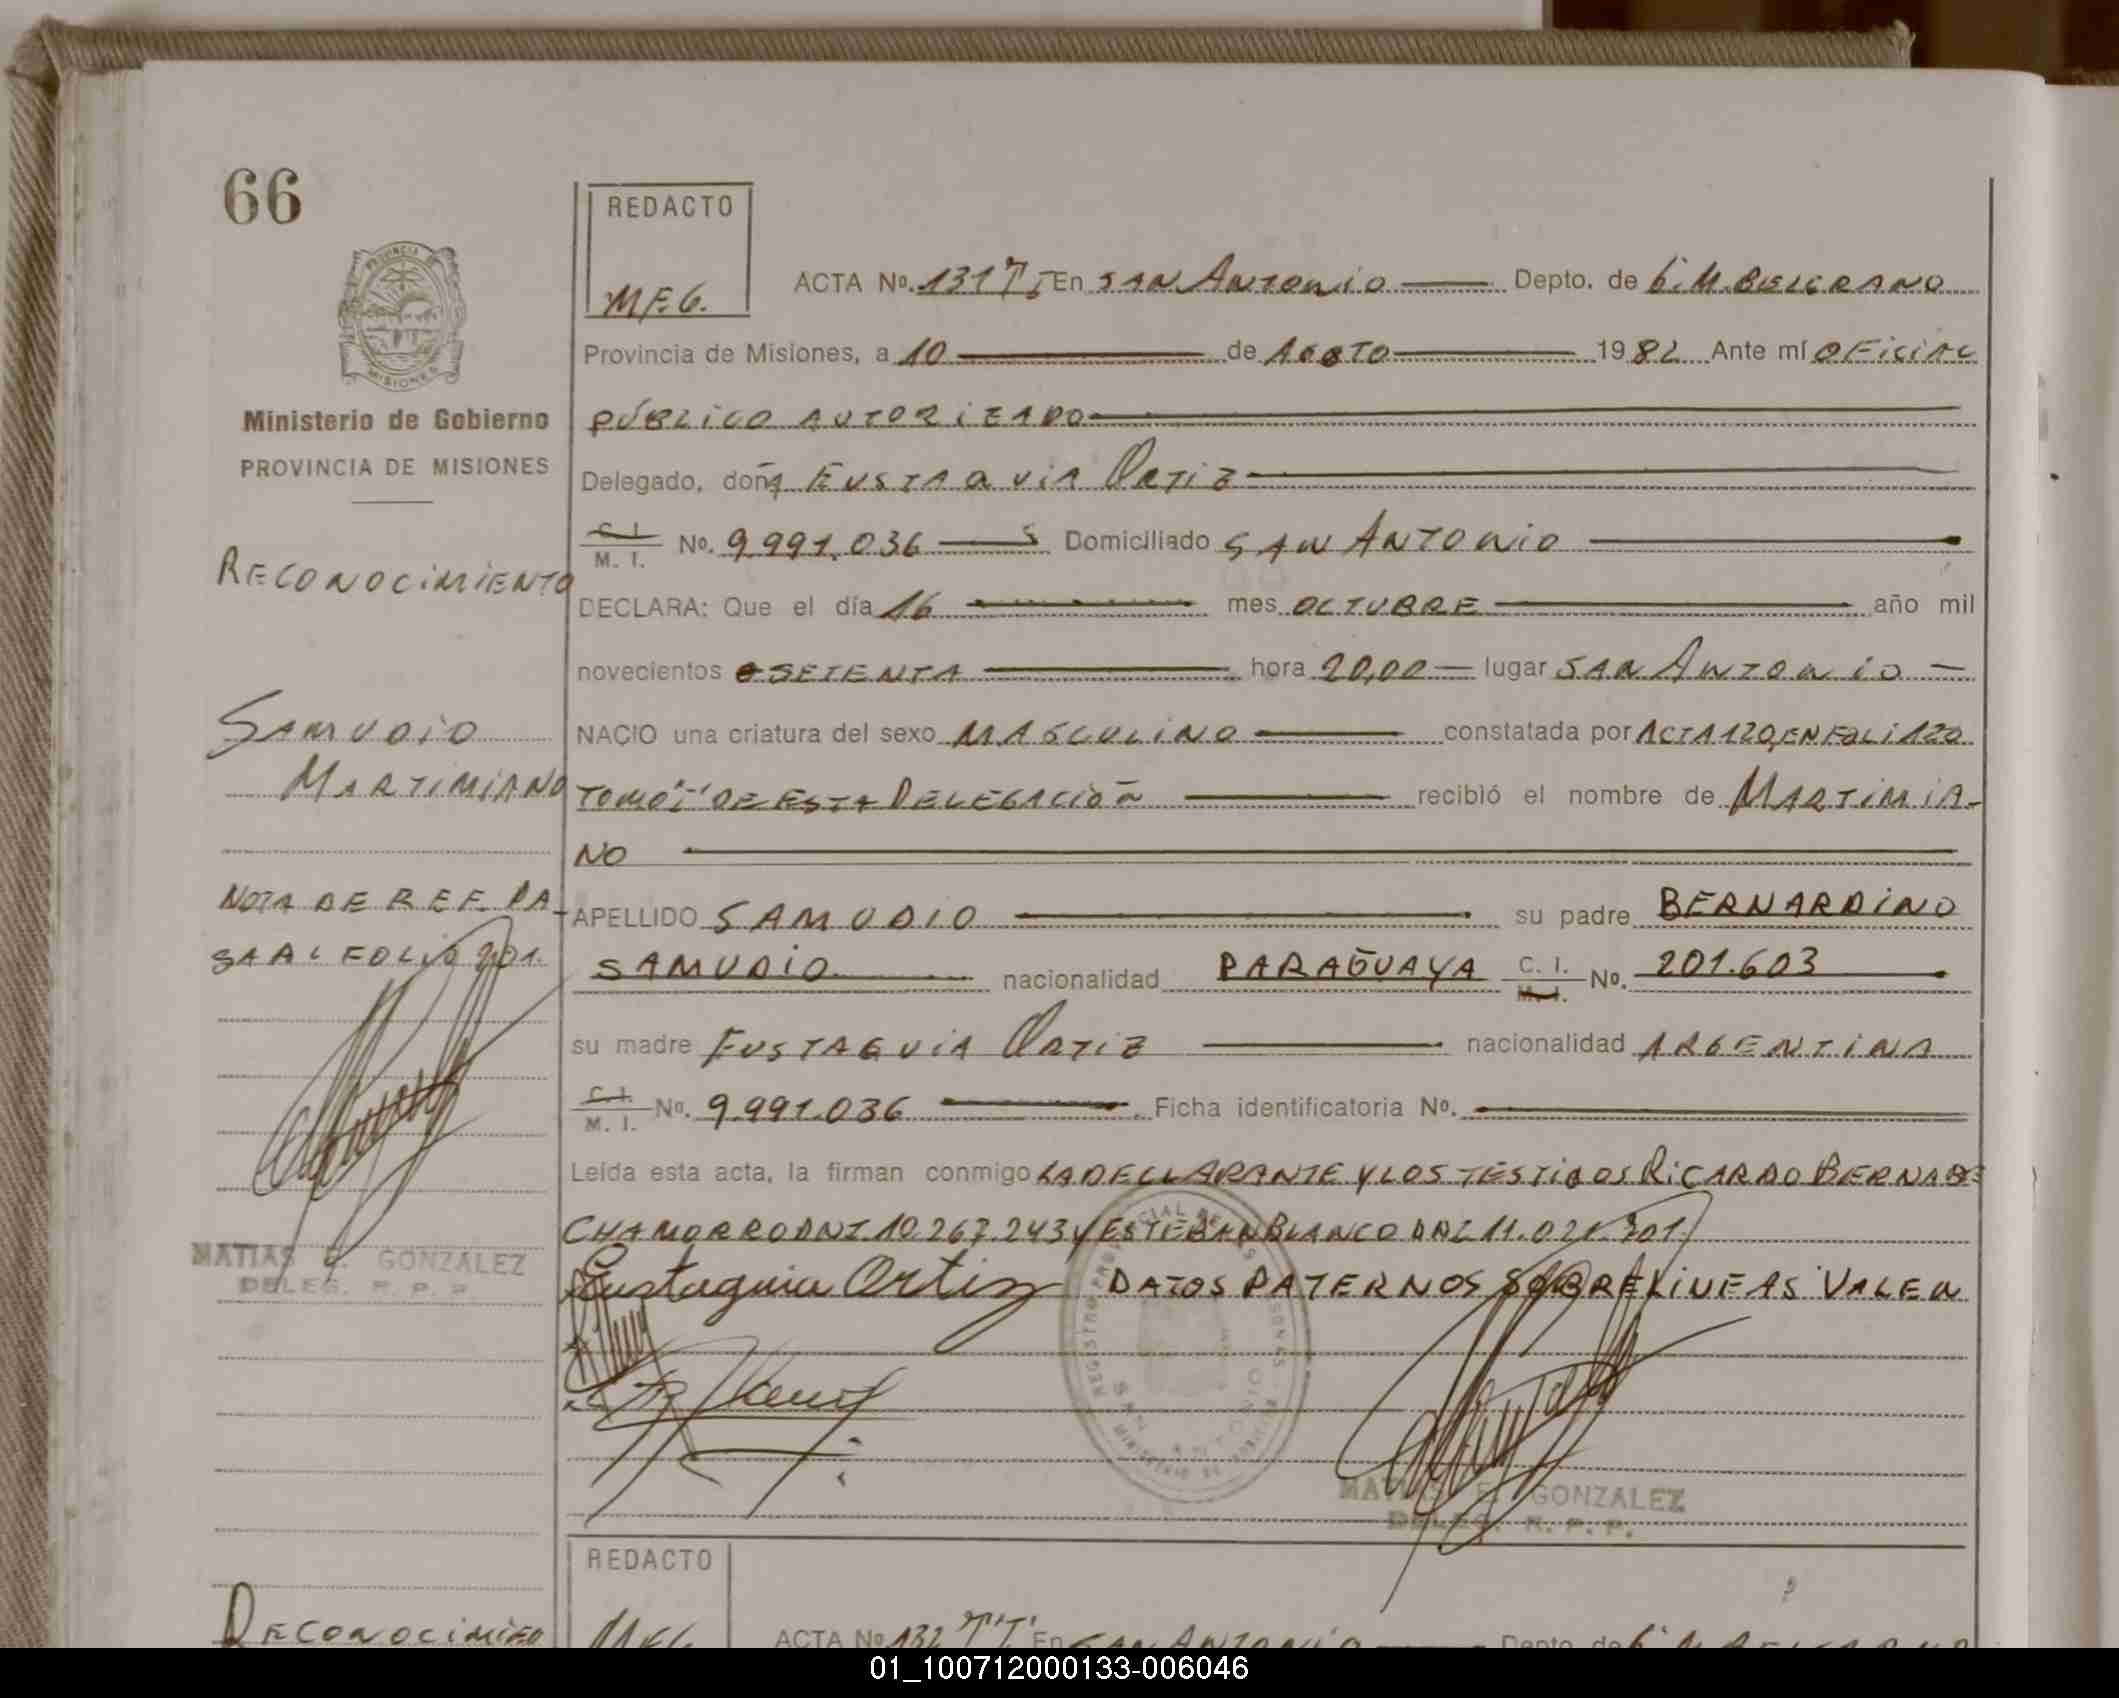 66
REDACTO
M.F.G.
PROVINCIA DE
MISIONES
Ministerio de Gobierno
PROVINCIA DE MISIONES
ACTA No. 131 En SAN ANTONIO Depto. de G. M. BELGRANO
Provincia de Misiones, a 10 de AGOTO 1982 Ante mí OFICIAL
PÚBLICO AUTORIZADO
Delegado, doña EUSTAQUIA ORTIZ
C. I. M. I. No. 9.991.036 Domiciliado SAN ANTONIO
RECONOCIMIENTO
DECLARA: Que el día 16 mes OCTUBRE año mil
novecientos SETENTA hora 20,00 lugar SAN ANTONIO
SAMUDIO
NACIO una criatura del sexo MASCULINO constatada por ACTA 120, EN FOLI 120
MARTIMIANO
TOMO "I" DE ESTA DELEGACIÓN recibió el nombre de MARTIMIA-
NO
NOTA DE REF. PA-
SA AL FOLIO 201.
APELLIDO SAMUDIO su padre BERNARDINO
SAMUDIO nacionalidad PARAGUAYA C. I. M. I. No. 201.603
su madre EUSTAQUIA ORTIZ nacionalidad ARGENTINA
C. I. M. I. No. 9.991.036 Ficha identificatoria No.
Leída esta acta, la firman conmigo LA DECLARANTE Y LOS TESTIGOS RICARDO BERNABE
CHAMORRO DNI. 10.267.243 Y ESTEBAN BLANCO DNI 11.021.301
Eustaquia Ortiz DATOS PATERNOS SOBRELINEAS VALEN
MATIAS E. GONZALEZ
DELEG. R. P. P.
SAN ANTONIO
MATIAS E. GONZALEZ
DELEG. R. P. P.
REDACTO
M.F.G.
RECONOCIMIENTO
ACTA No 132 En SAN ANTONIO Depto. de G. M. BELGRANO
01_100712000133-006046